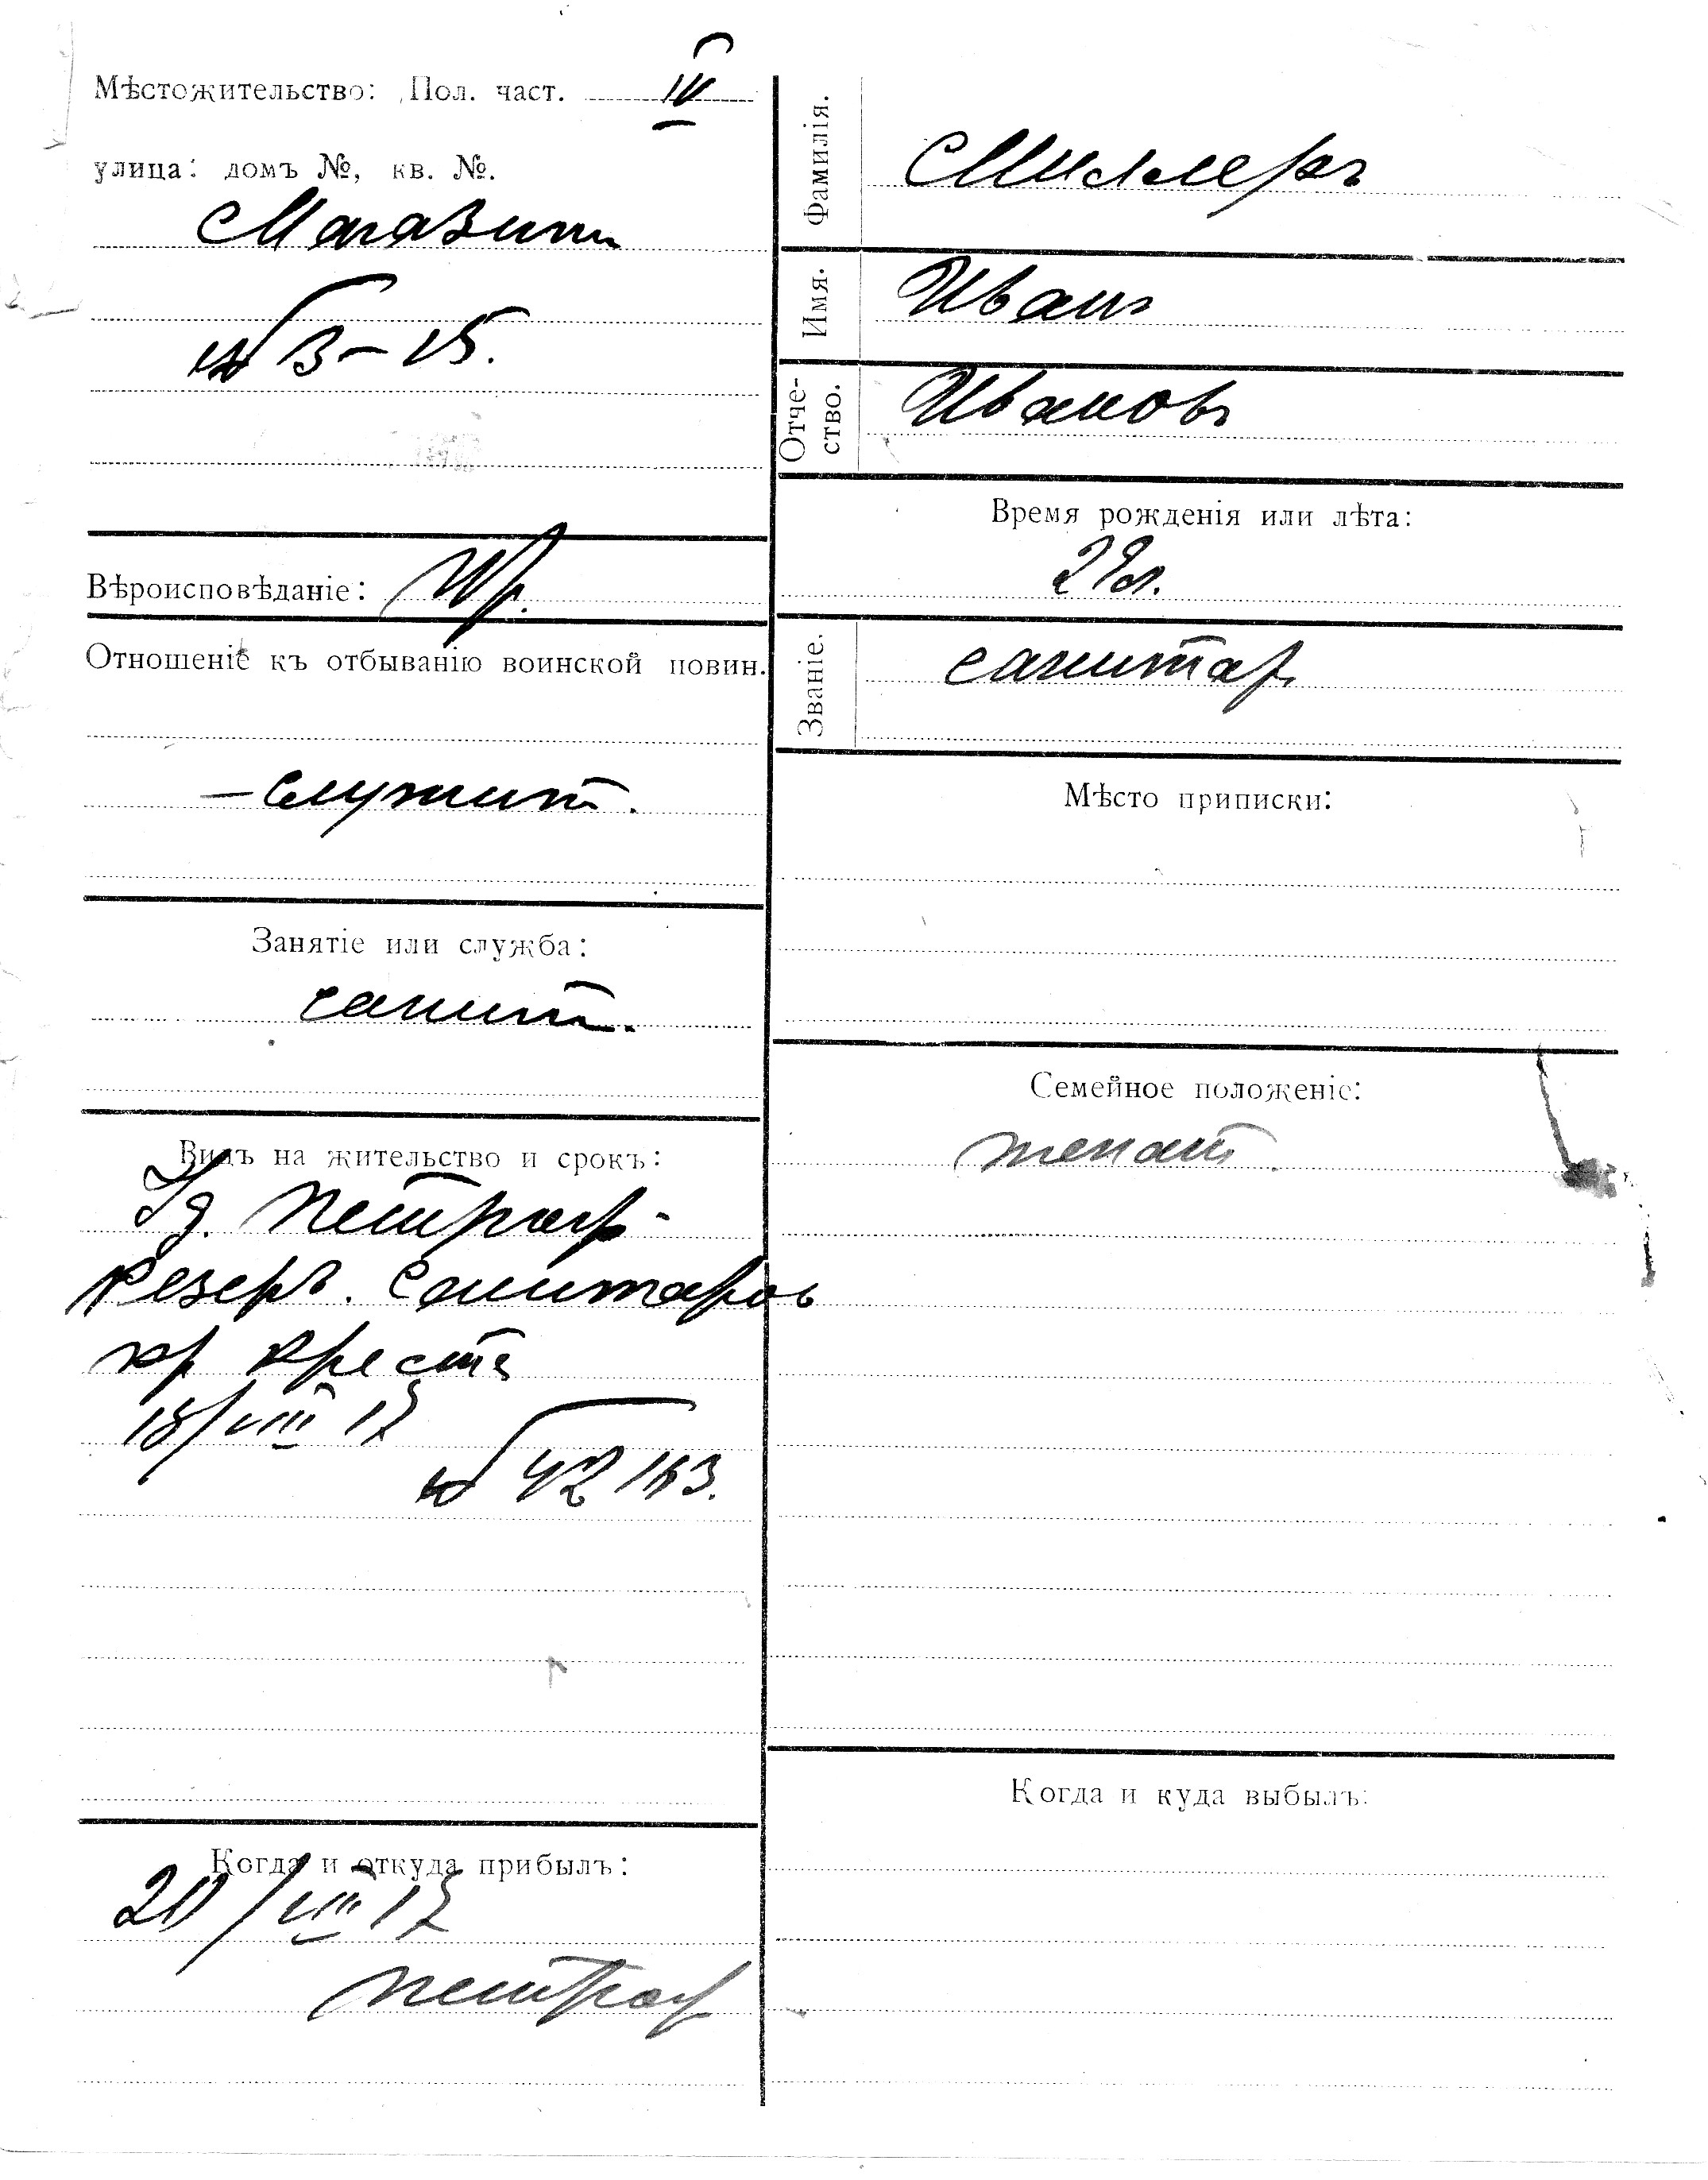 Мѣстожительство: Пол. част. IV
улица: домъ №, кв. №.
Магазин
№ 3 – 15.
Вѣроисповѣданіе: Пр.
Отношеніе къ отбыванію воинской повин.
– служит.
Занятіе или служба:
санит.
Видъ на жительство и срокъ:
Уд. Петрогр-
резерв. санитаров
кр креста
18/VIII 17
№ 42
Когда и откуда прибылъ:
20/VIII 17
Петрогр
Фамилія. Миллеръ
Имя. Иванъ
Отче-
ство. Ивановъ
Время рожденія или лѣта:
Званіе. санитар.
Мѣсто приписки:
Семейное положеніе:
женат.
Когда и куда выбылъ: